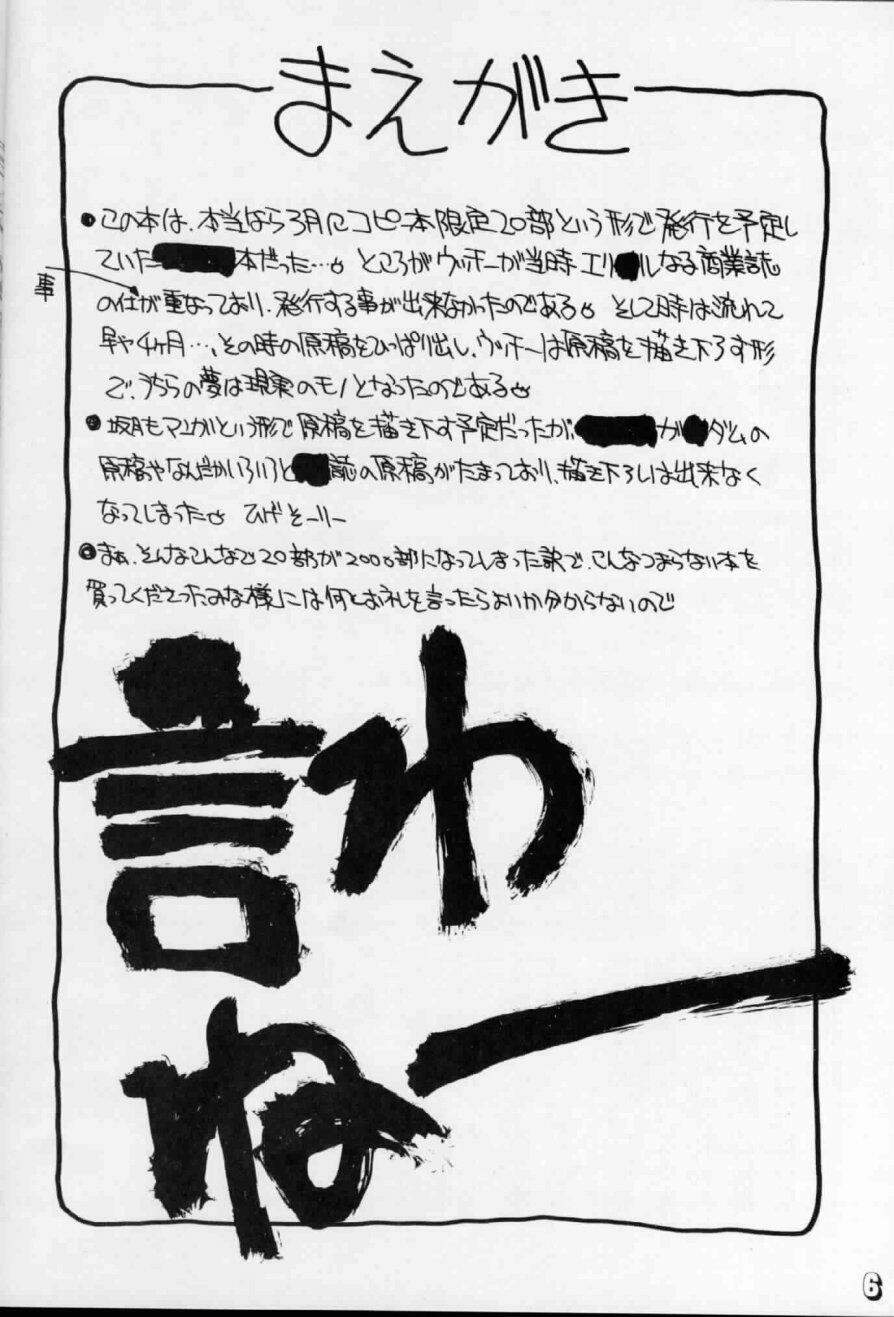 まえがき
●この本は、本当なら3月にコピー本限定20部という形で発行を予定し
ていた 本だった…。ところがウッホーが当時エリ ルなる商業誌
事
の仕が重なっており、発行する事が出来なかったのである。そして時は流れて
早や4ヶ月…、その時の原稿をひっぱり出し、ウッホーは原稿を描き下ろす形
で、うちらの夢は現実のモノとなったのである。
●坂月もマンガという形で原稿を描き下す予定だったが、 ガ ダムの
原稿やなんだかいろいろと 誌の原稿がたまっており、描き下ろしは出来なく
なってしまった。ひげそーりー
●まぁ、そんなこんなで20部が2000部になってしまった訳で、こんなつまらない本を
買ってくださったみな様には何とお礼を言ったらよいか分からないので
言わ
ねー
6